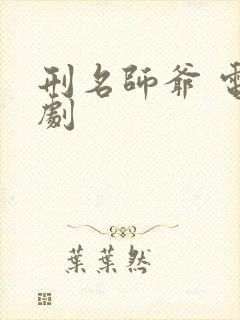 刑名師爺 電
劇
葉葉然